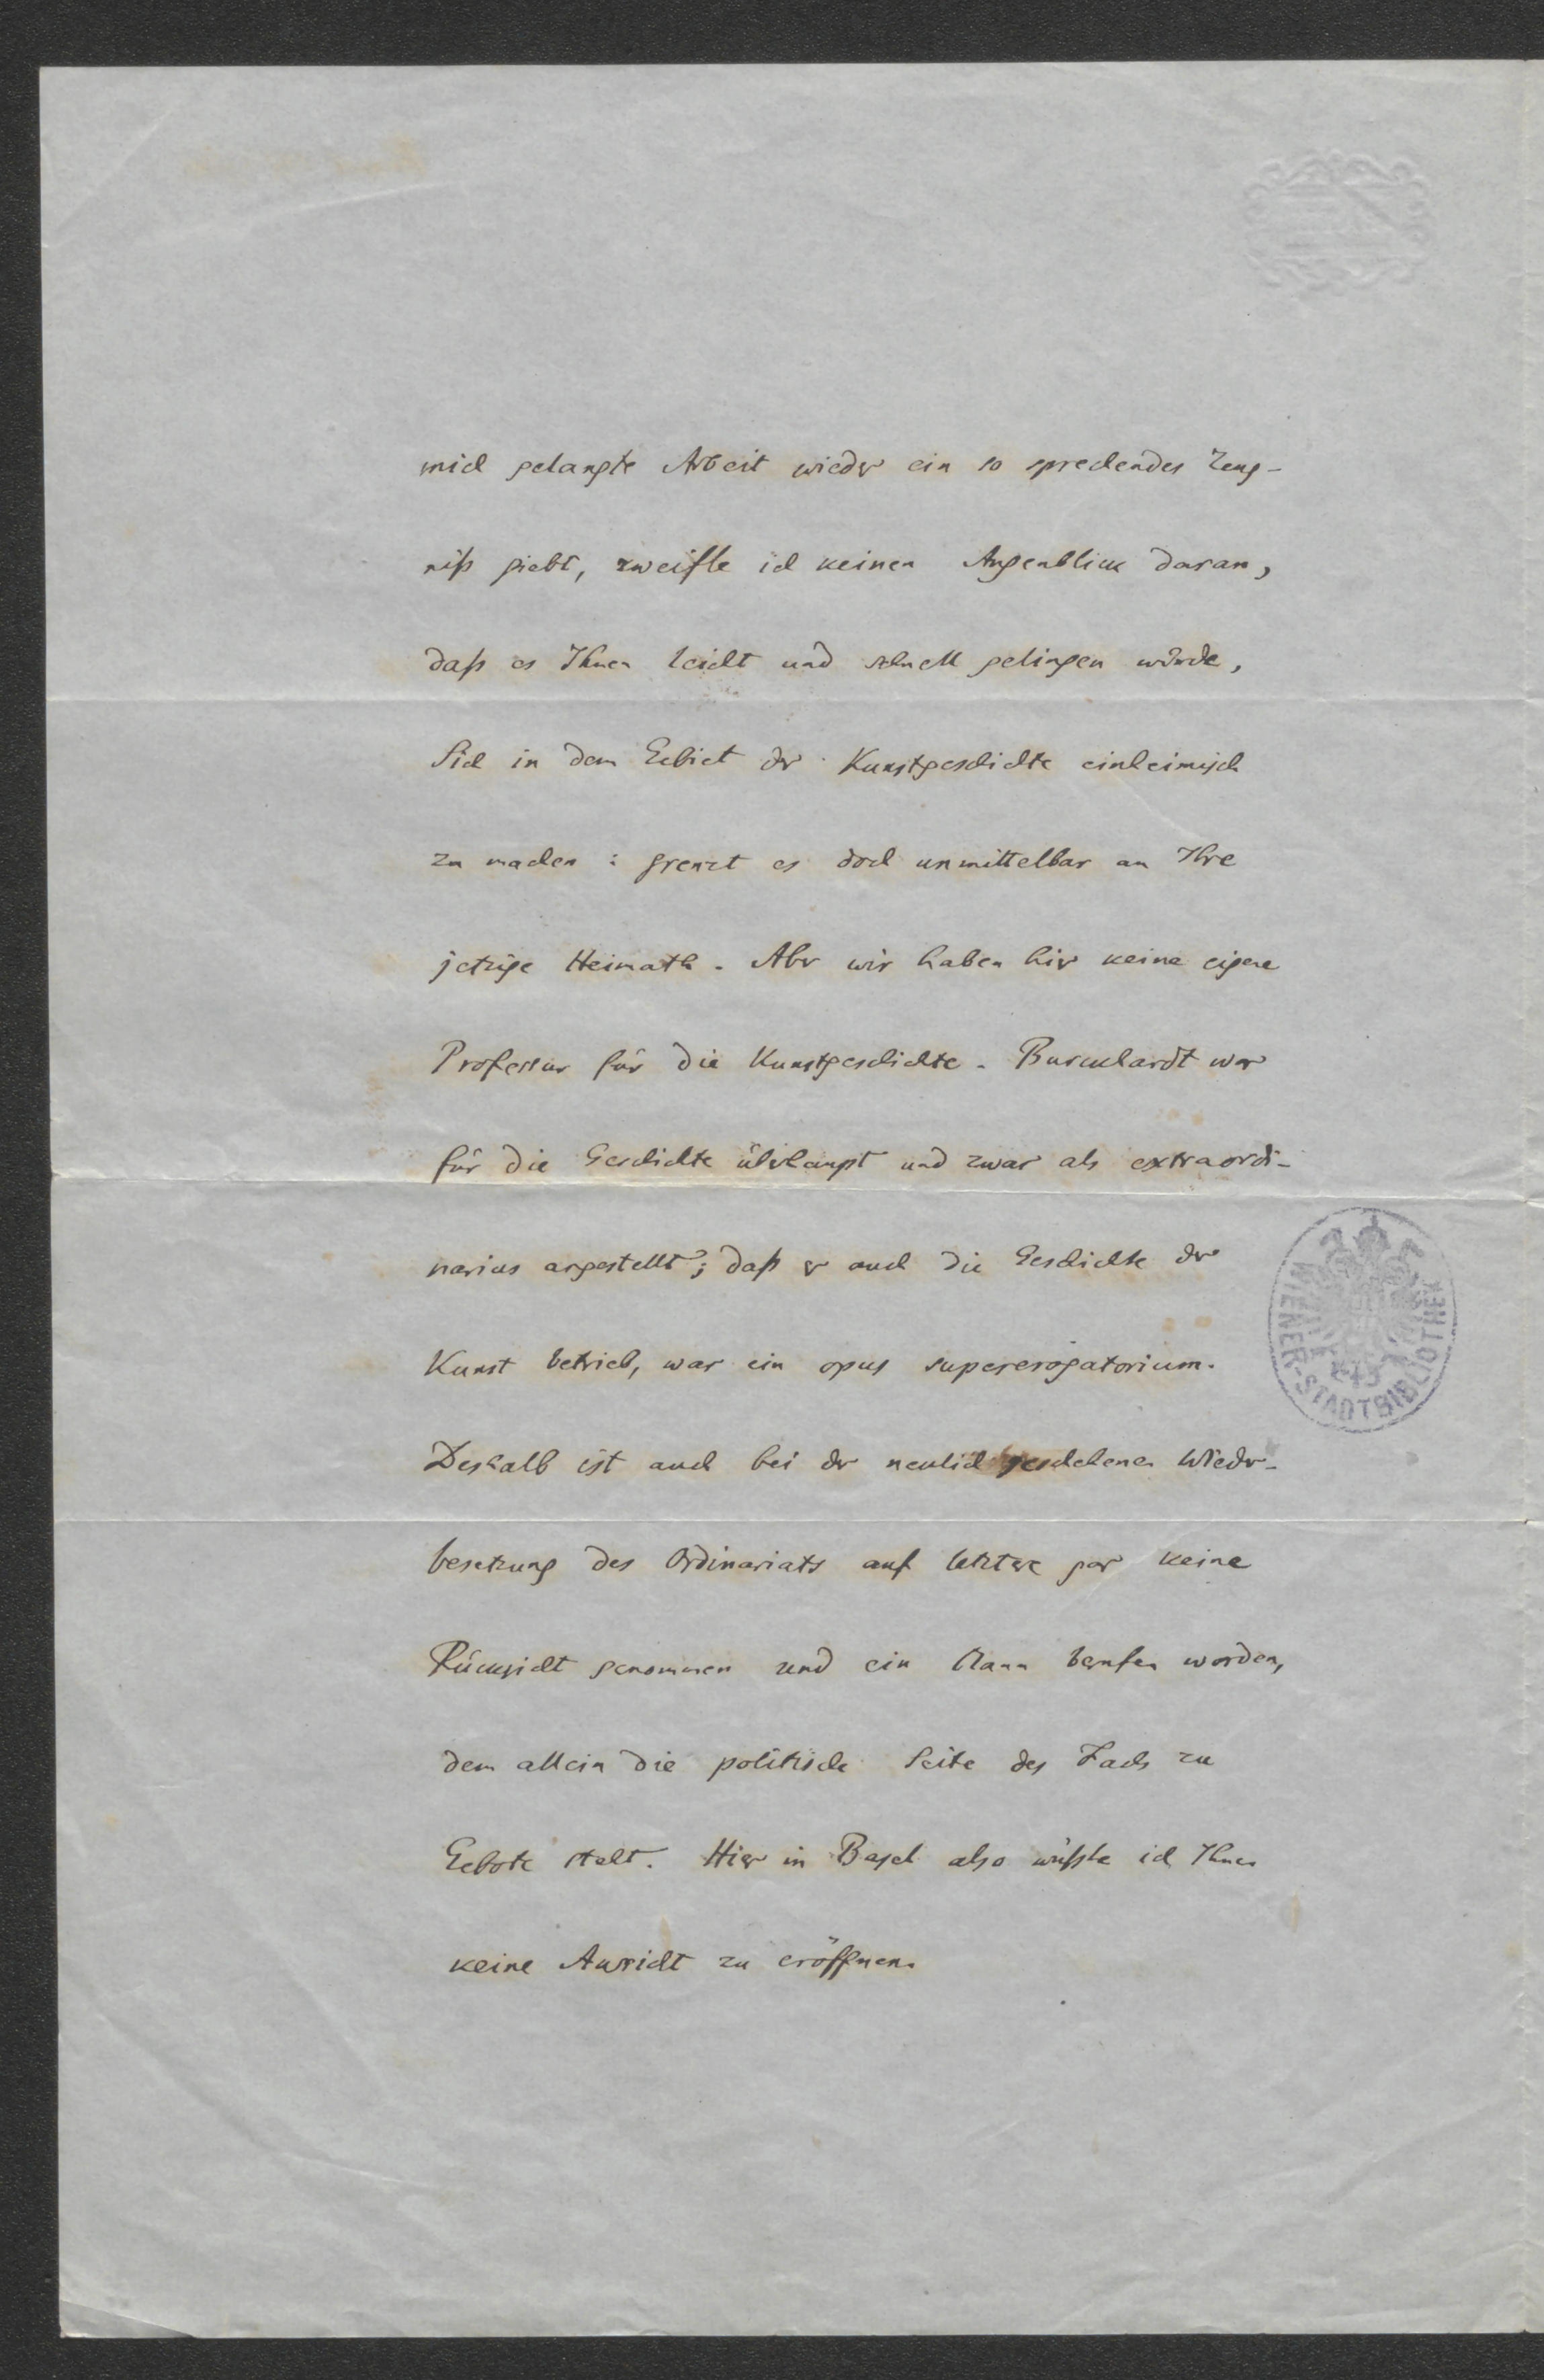 mich gelangte Arbeit wieder ein so sprechendes Zeug-
niß giebt, zweifle ich keinen Augenblick daran,
daß es Ihnen leicht und schnell gelingen würde,
Sich in dem Gebiet der Kunstgeschichte einheimisch
zu machen: grenzt es doch unmittelbar an Ihre
jetzige Heimath. Aber wir haben hier keine eigene
Professur für die Kunstgeschichte. Burckhardt war
für die Geschichte überhaupt und zwar als extraordi-
narius angestellt; daß er auch die Geschichte der
Kunst betrieb, war ein opus supererogatorium.
Deshalb ist auch bei der neulich geschehenen Wieder-
besetzung des Ordinariats auf letztere gar keine
Rücksicht genommen und ein Mann berufen worden,
dem allein die politische Seite des Fachs zu
Gebote steht. Hier in Basel also wüßte ich Ihnen
keine Aussicht zu eröffnen.
WIENER-STADTBIBLIOTHEK